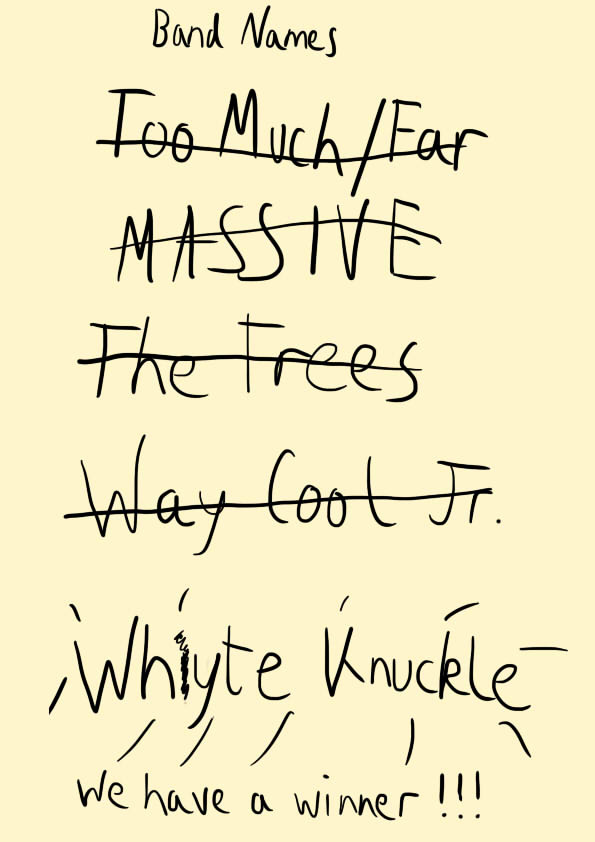 Band Names
Too Much/Far
MASSIVE
The Trees
Way Cool Jr.
Whyte Knuckle
We have a winner!!!